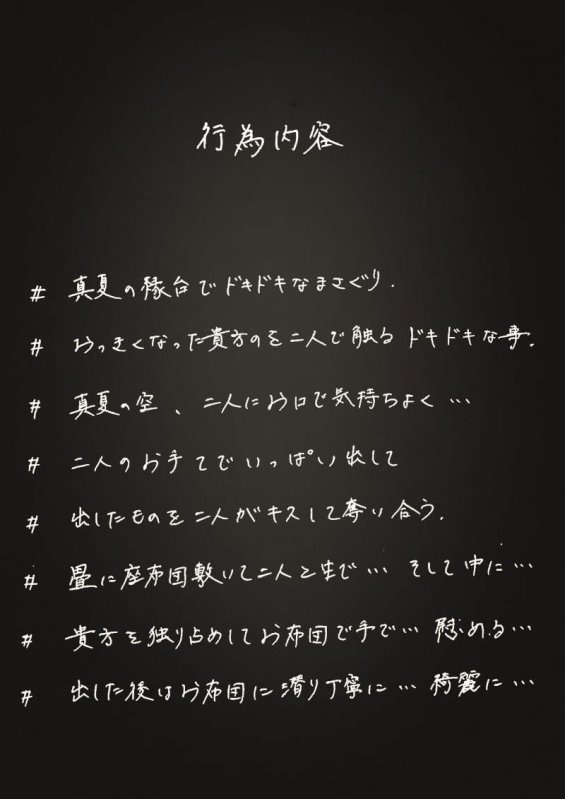 行為内容
# 真夏の縁台でドキドキなまさぐり.
# おっきくなった貴方のを二人で触るドキドキな事.
# 真夏の空、二人にお口で気持ちよく…
# 二人のお手てでいっぱい出して
# 出したものを二人がキスして奪い合う.
# 畳に座布団敷いて二人と生で… そして中に…
# 貴方を独り占めしてお布団で手で… 慰める…
# 出した後はお布団に潜り丁寧に… 綺麗に…